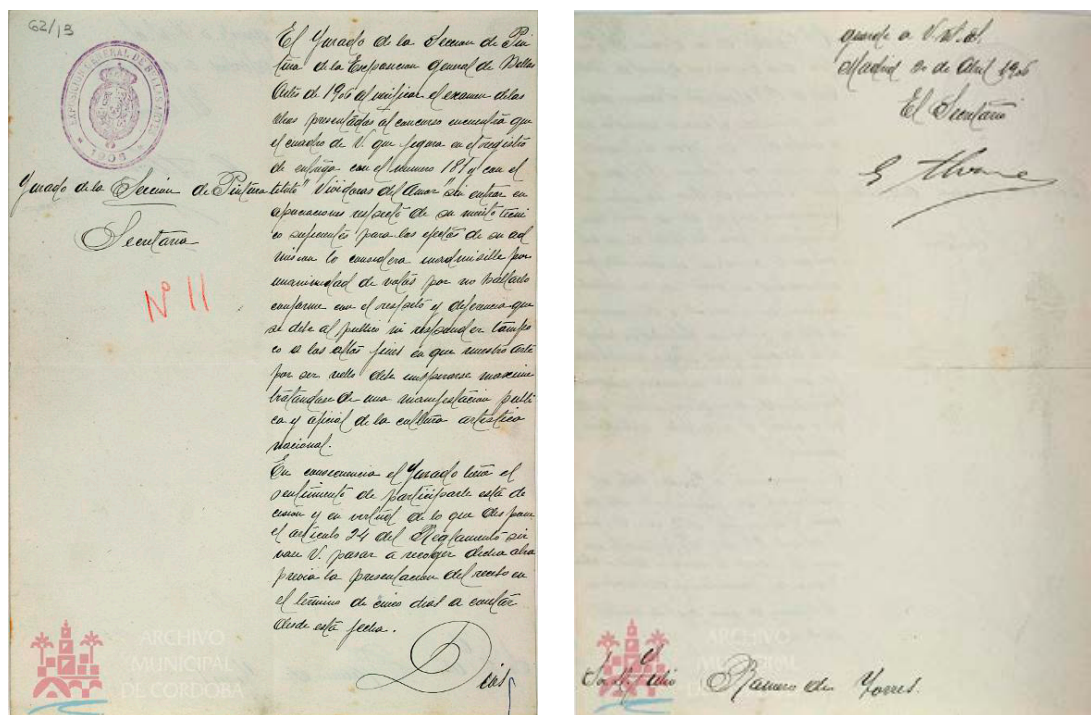 62/13
EXPOSICION GENERAL DE BELLAS ARTES
* 1906 *
Jurado de la Sección de Pintura
Secretaria
Nº 11
El Jurado de la Seccion de Pin
tura de la Exposicion General de Bellas
Artes de 1906 al verificar el examen de las
obras presentadas al concurso encuentra que
el cuadro de V. que figura en el registro
de entrega con el numero 181 y con el
titulo "Vividoras del Amor" sin entrar en
apreciaciones respecto de su merito tecni
co suficientes para los efectos de su ad
mision lo considera inadmisible por
unanimidad de votos por no hallarlo
conforme con el respeto y deferencia que
se debe al publico ni responder tampo
co a los altos fines en que nuestro arte
por ser bello debe inspirarse maxime
tratandose de una manifestacion publi
ca y oficial de la cultura artistica
nacional.
En consecuencia el Jurado tiene el
sentimiento de participarle esta de
cision y en virtud de lo que dispone
el articulo 24 del Reglamento sir
vase V. pasar a recoger dicha obra
previa la presentacion del recibo en
el término de cinco dias a contar
desde esta fecha.
Dios
ARCHIVO
MUNICIPAL
DE CORDOBA
guarde a V. m. a.
Madrid 20 de Abril 1906
El Secretario
Sr. D. Julio Romero de Torres.
ARCHIVO
MUNICIPAL
DE CORDOBA